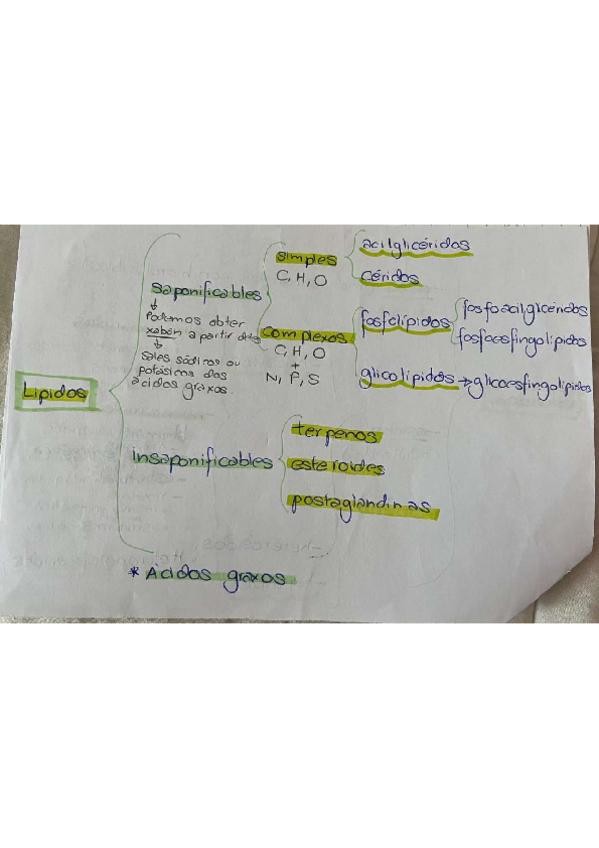 Lípidos
saponificables
Podemos obter
xabón a partir deles
sales sódicos ou
potásicos dos
ácidos graxos.
simples
C, H, O
acilglicéridos
Céridos
Complexos
C, H, O
+
N, P, S
fosfolípidos
fosfoacilglicéridos
fosfoesfingolípidos
glicolípidos → glicoesfingolípidos
insaponificables
terpenos
esteroides
postaglandinas
* Ácidos graxos